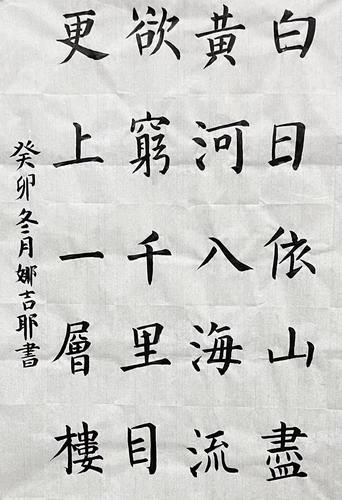 白日依山盡
黃河八海流
欲窮千里目
更上一層樓
癸卯冬月娜吉耶書